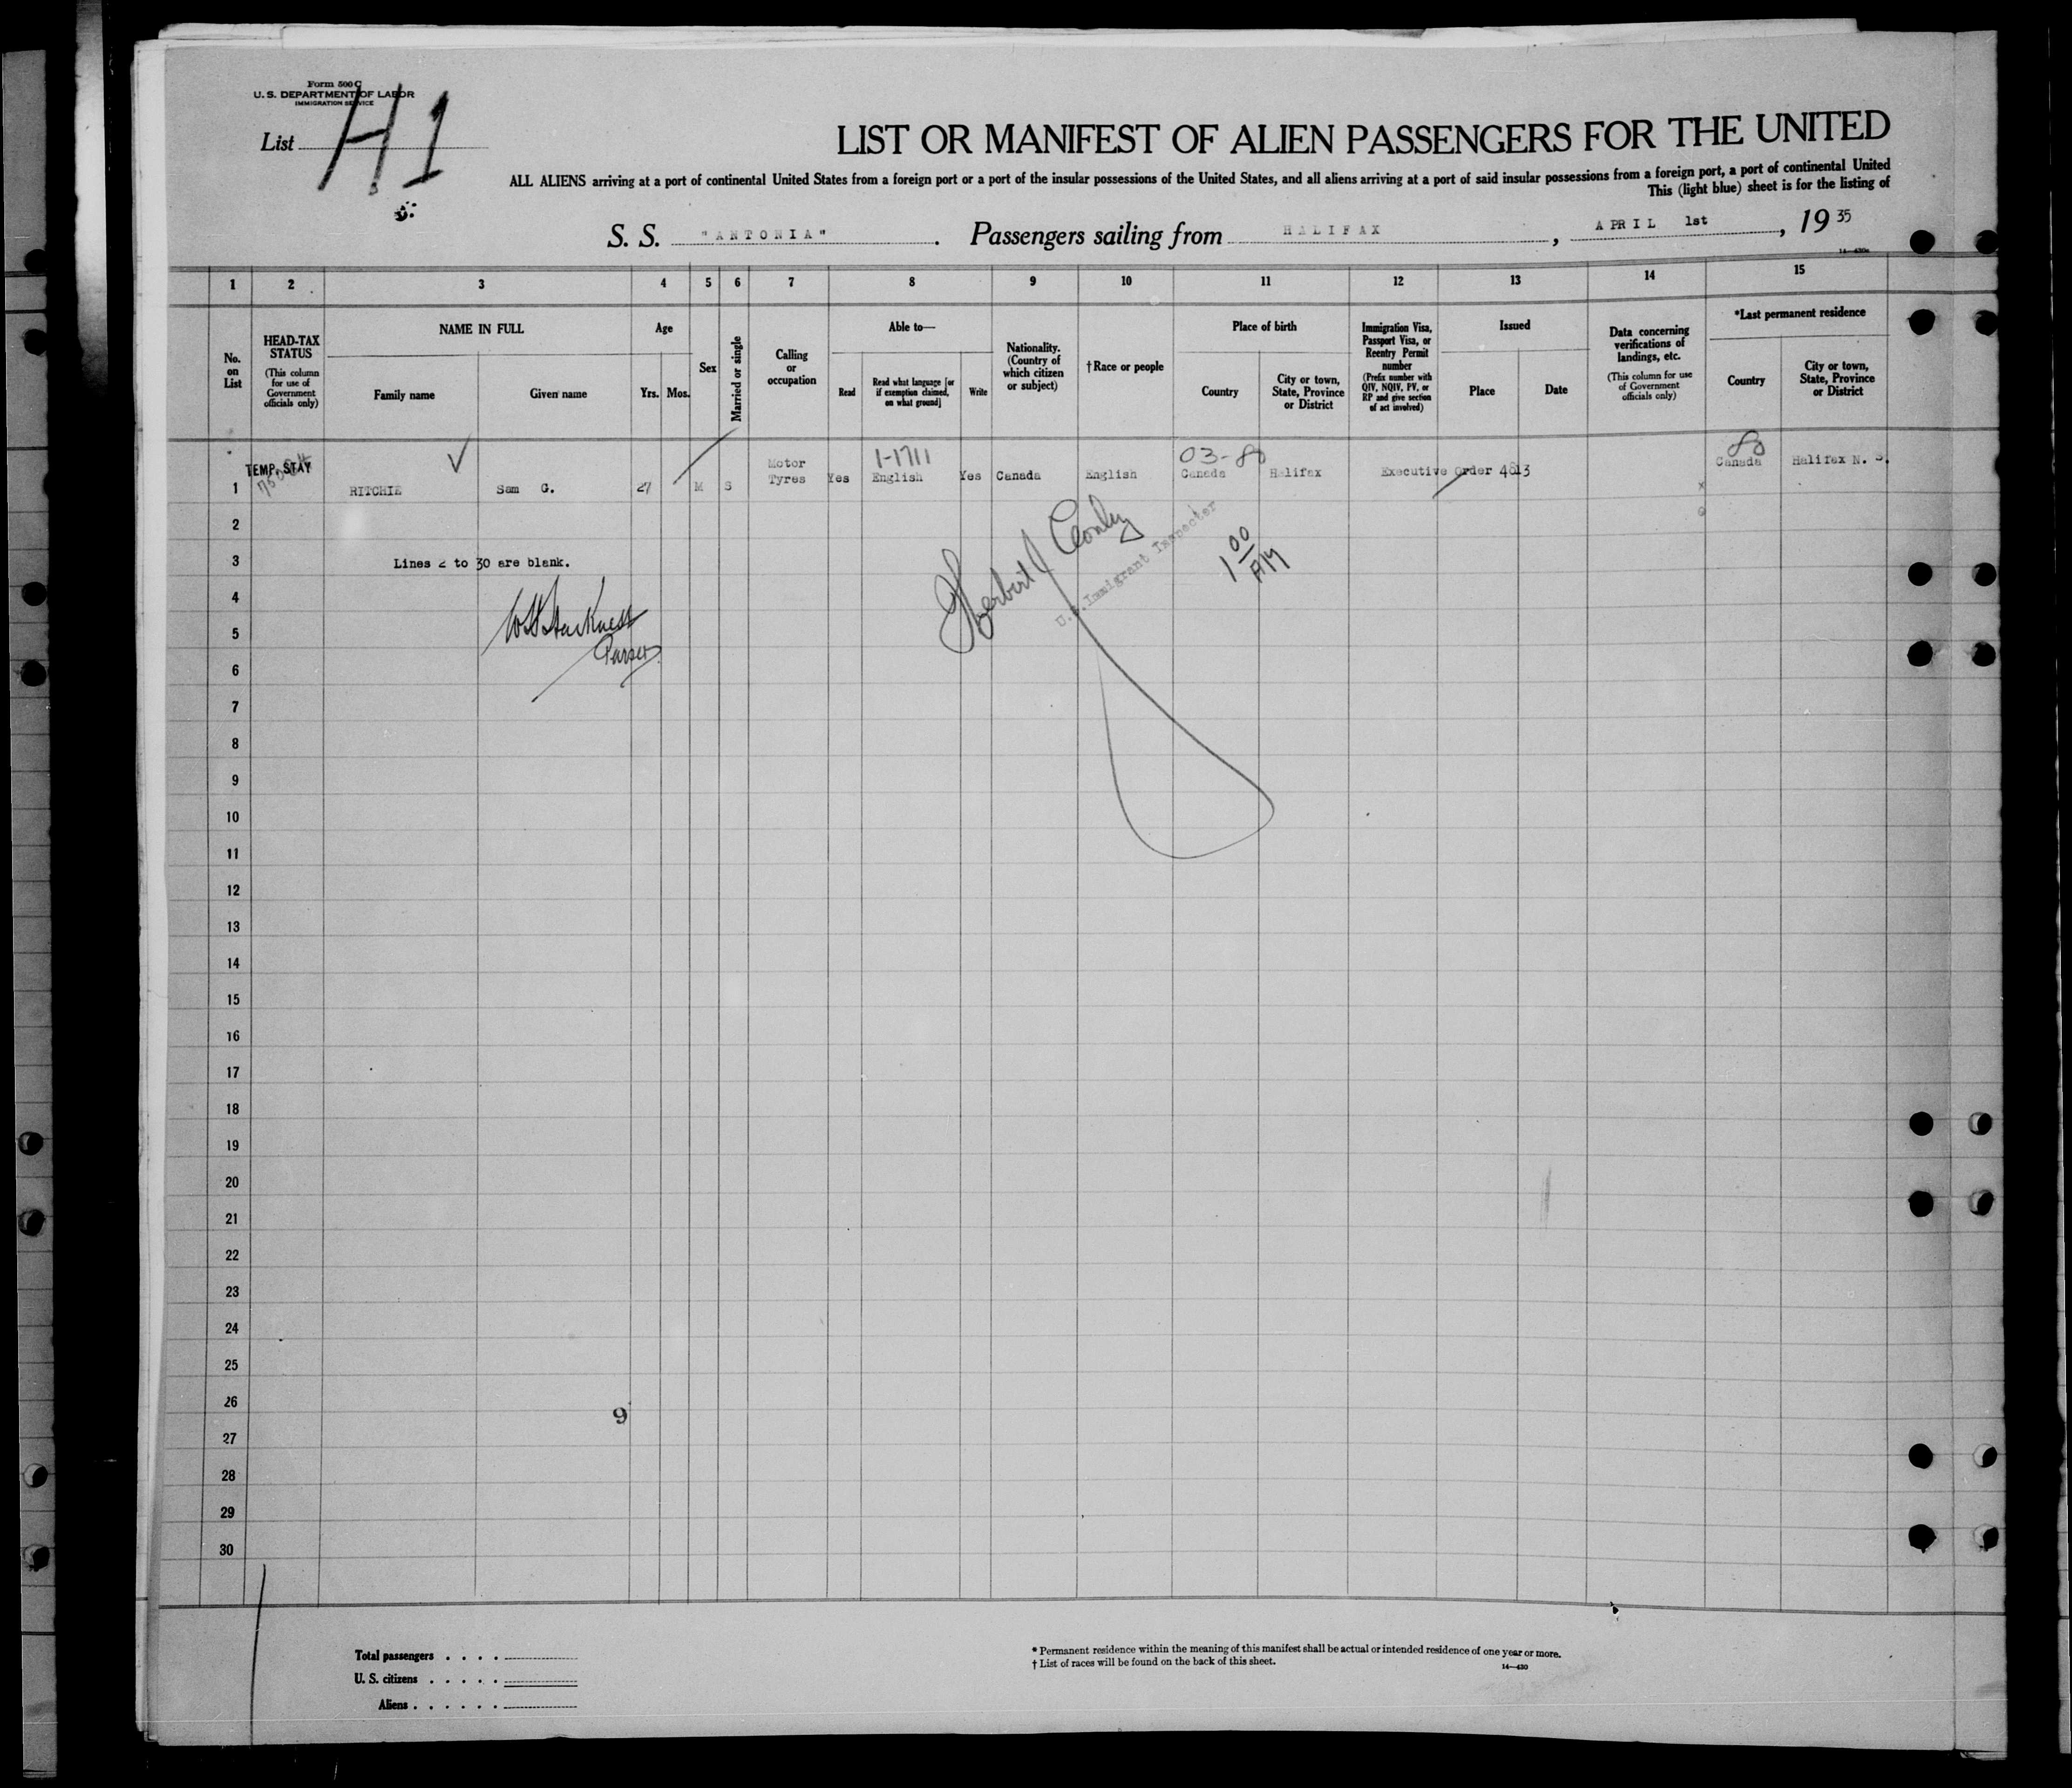 Form 500 C
U. S. DEPARTMENT OF LABOR
IMMIGRATION SERVICE
List H1
LIST OR MANIFEST OF ALIEN PASSENGERS FOR THE UNITED
ALL ALIENS arriving at a port of continental United States from a foreign port or a port of the insular possessions of the United States, and all aliens arriving at a port of said insular possessions from a foreign port, a port of continental United
This (light blue) sheet is for the listing of
S. S. "ANTONIA". Passengers sailing from HALIFAX, APRIL 1st, 1935
1 2 3 4 5 6 7 8 9 10 11 12 13 14 15
No. on List
HEAD-TAX STATUS (This column for use of Government officials only)
NAME IN FULL
Family name
Given name
Age
Yrs. Mos.
Sex
Married or single
Calling or occupation
Able to—
Read
Read what language [or if exemption claimed, on what ground]
Write
Nationality. (Country of which citizen or subject)
† Race or people
Place of birth
Country
City or town, State, Province or District
Immigration Visa, Passport Visa, or Reentry Permit number (Prefix number with QIV, NQIV, PV, or RP and give section of act involved)
Issued
Place
Date
Data concerning verifications of landings, etc. (This column for use of Government officials only)
*Last permanent residence
Country
City or town, State, Province or District
TEMP. STAY
1-1711
03-80
80
1 RITCHIE Sam G. 27 M S Motor Tyres Yes English Yes Canada English Canada Halifax Executive Order 4813 Canada Halifax N. S.
2
3 Lines 2 to 30 are blank.
Purser
Herbert J
U. S. Immigrant Inspector
1 00
4
5
6
7
8
9
10
11
12
13
14
15
16
17
18
19
20
21
22
23
24
25
26
9
27
28
29
30
Total passengers . . . .
U. S. citizens . . . . .
Aliens . . . . . .
* Permanent residence within the meaning of this manifest shall be actual or intended residence of one year or more.
† List of races will be found on the back of this sheet.
14—430